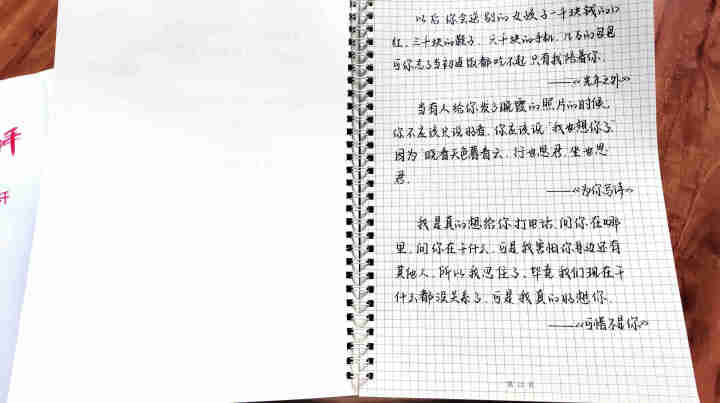 以后你会送别的女孩子一千块钱的口
红，三千块的鞋子，六千块的手机，几万的包包
可你忘了当初连饭都吃不起只有我陪着你.
——《光年之外》
当有人给你发了晚霞的照片的时候，
你不应该只说好看，你应该说"我也想你了"
因为"晓看天色暮看云，行也思君，坐也思
君.
——《为你写诗》
我是真的想给你打电话，问你在哪
里，问你在干什么，可是我害怕你身边还有
其他人，所以我忍住了，毕竟我们现在干
什么都没关系了，可是我真的好想你.
——《可惜不是你》